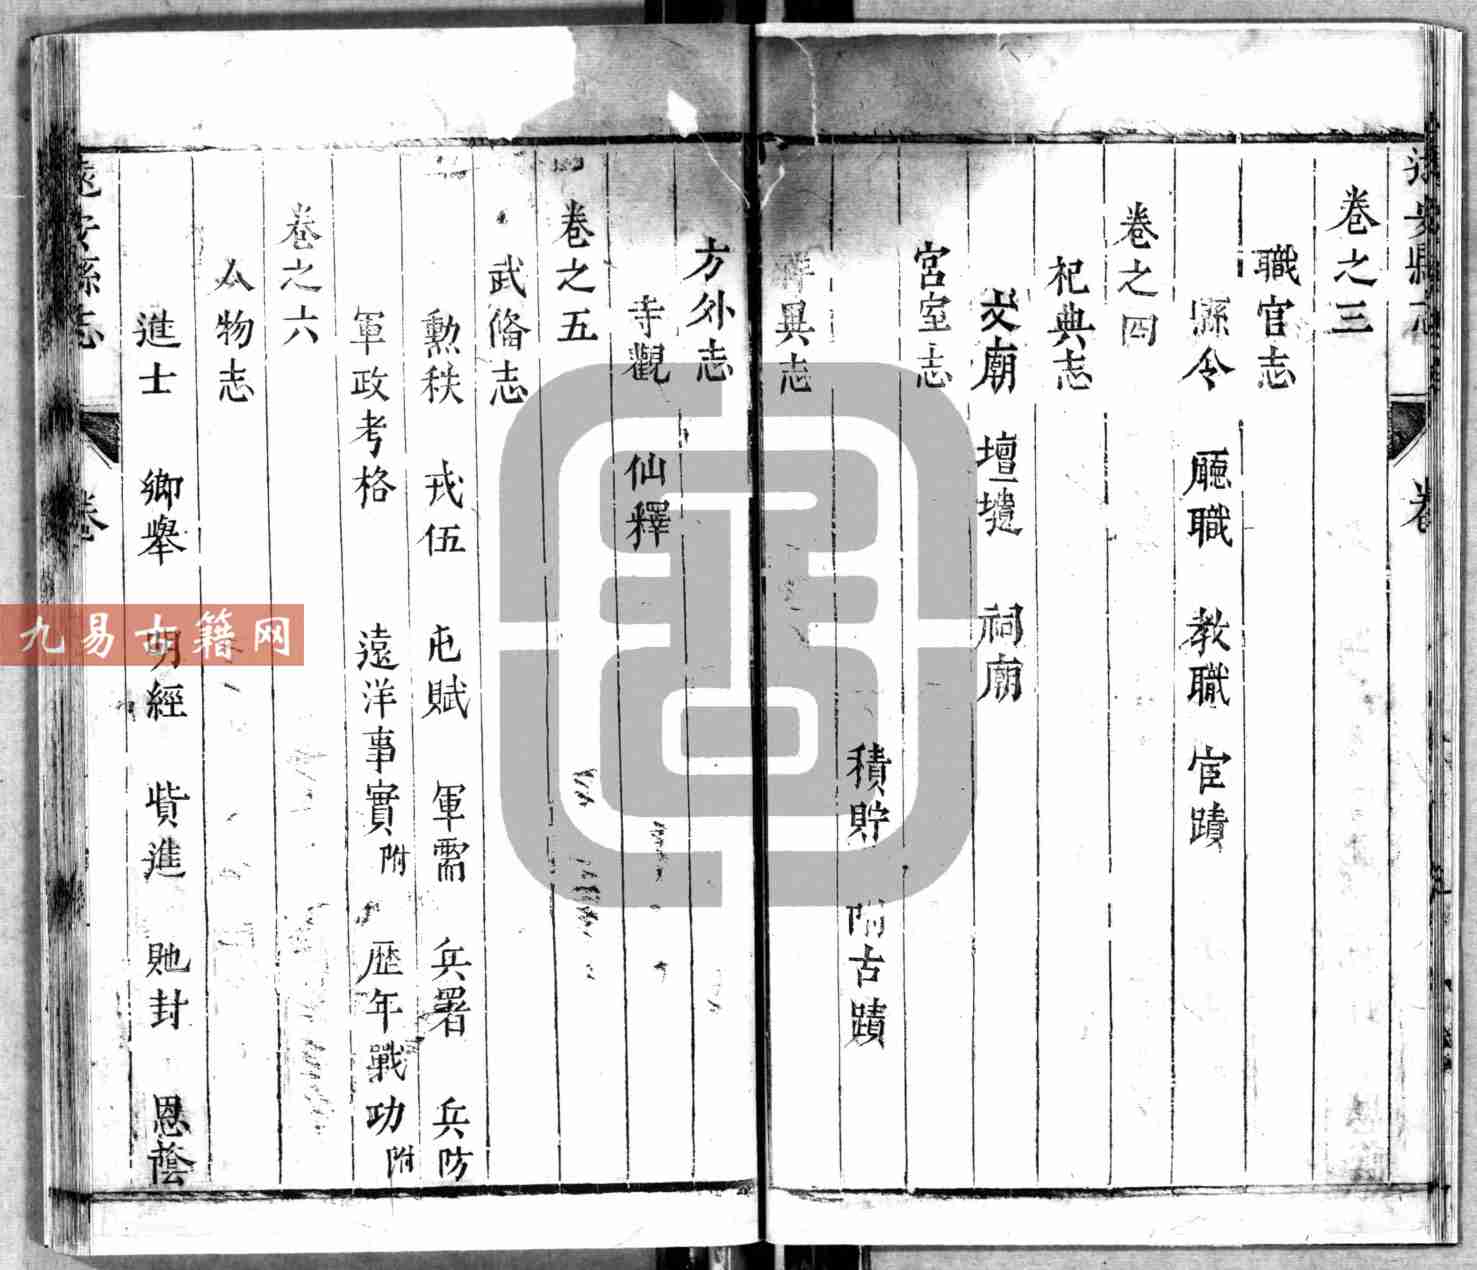 遠安縣志 卷
卷之三
職官志
縣令 廳職 教職 宦蹟
卷之四
祀典志
文廟 壇壝 祠廟
宮室志
積貯 附古蹟
祥異志
方外志
寺觀 仙釋
卷之五
武俻志
勲秩 戎伍 屯賦 軍需 兵署 兵防
軍政考格 遠洋事實附 歷年戰功附
卷之六
人物志
進士 鄉舉 明經 貲進 貤封 恩蔭
遠安縣志 卷
九易古籍网